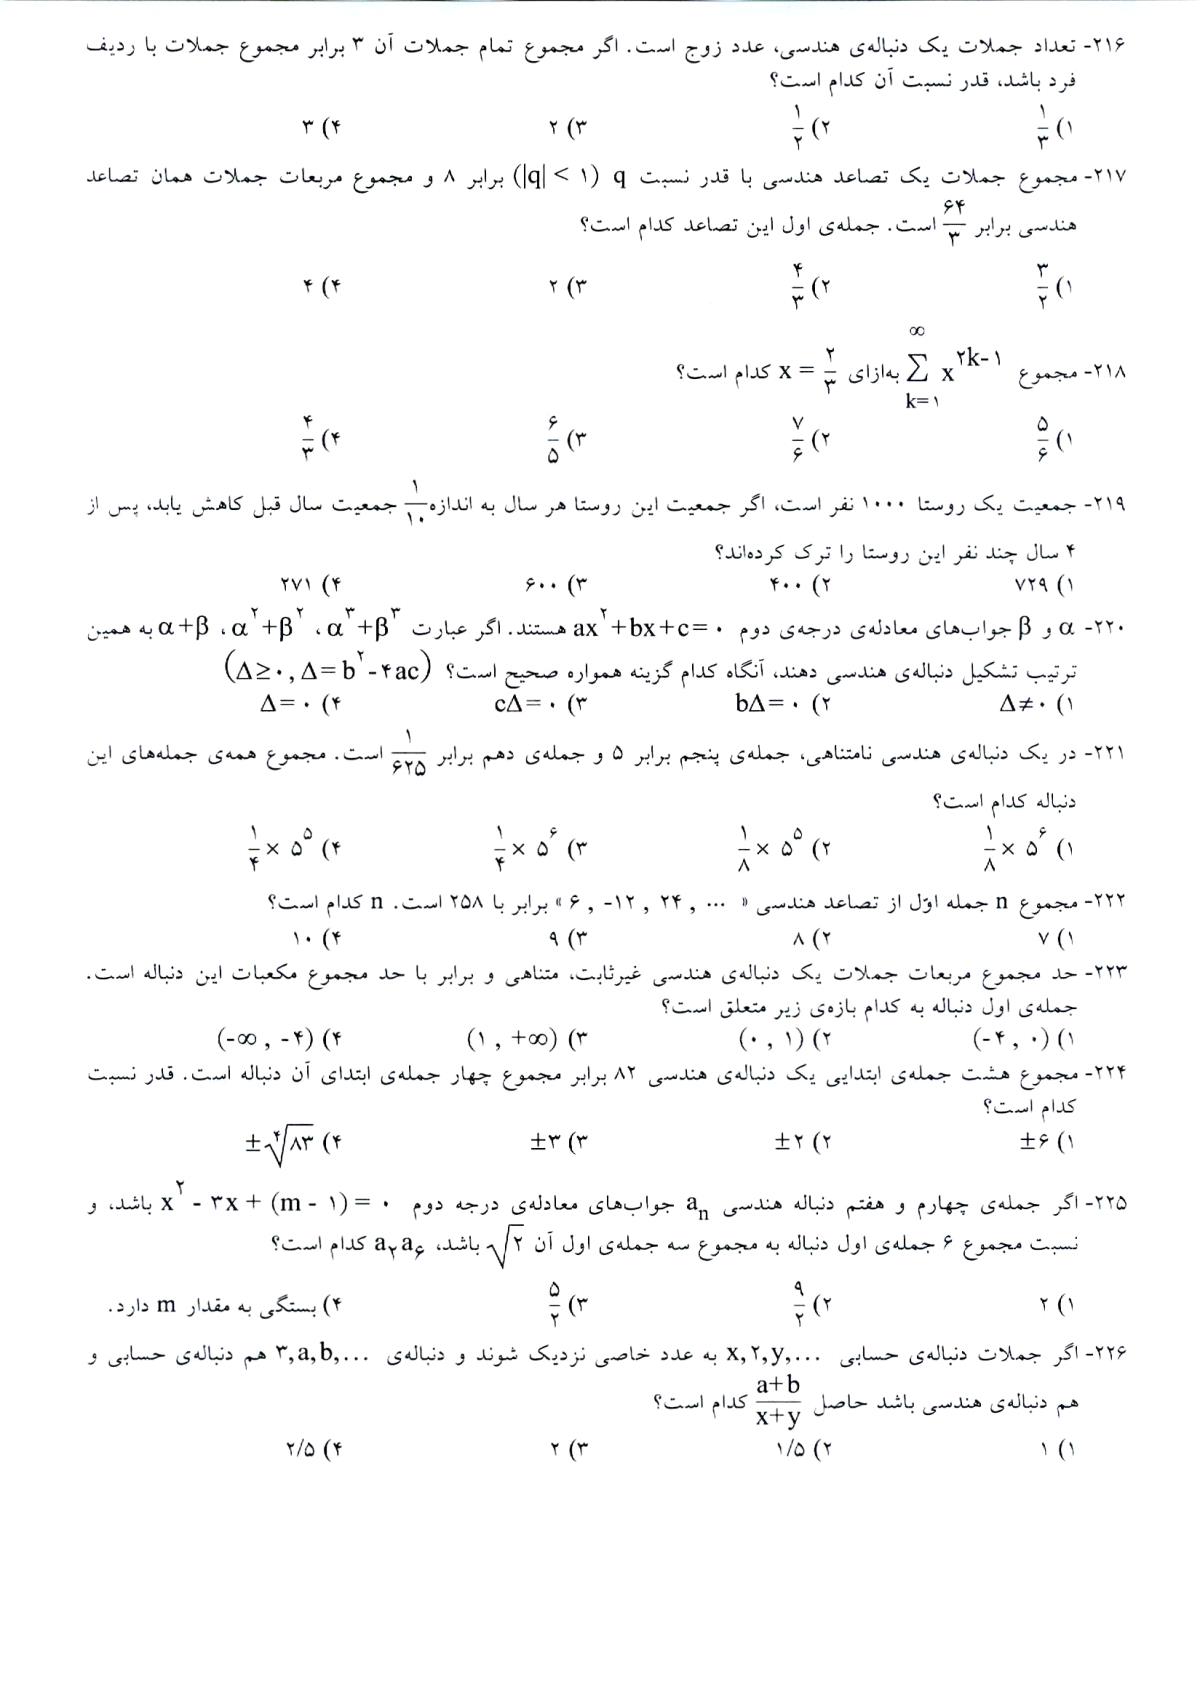 ۲۱۶- تعداد جملات یک دنباله‌ی هندسی، عدد زوج است. اگر مجموع تمام جملات آن ۳ برابر مجموع جملات با ردیف
فرد باشد، قدر نسبت آن کدام است؟
۱) ۱/۳ ۲) ۱/۲ ۳) ۲ ۴) ۳
۲۱۷- مجموع جملات یک تصاعد هندسی با قدر نسبت q (|q| < ۱) برابر ۸ و مجموع مربعات جملات همان تصاعد
هندسی برابر ۶۴/۳ است. جمله‌ی اول این تصاعد کدام است؟
۱) ۳/۲ ۲) ۴/۳ ۳) ۲ ۴) ۴
۲۱۸- مجموع ∑_{k=۱}^{∞} x^{۲k-۱} به‌ازای x = ۲/۳ کدام است؟
۱) ۵/۶ ۲) ۷/۶ ۳) ۶/۵ ۴) ۴/۳
۲۱۹- جمعیت یک روستا ۱۰۰۰ نفر است، اگر جمعیت این روستا هر سال به اندازه ۱/۱۰ جمعیت سال قبل کاهش یابد، پس از
۴ سال چند نفر این روستا را ترک کرده‌اند؟
۱) ۷۲۹ ۲) ۴۰۰ ۳) ۶۰۰ ۴) ۲۷۱
۲۲۰- α و β جواب‌های معادله‌ی درجه‌ی دوم ax²+bx+c=۰ هستند. اگر عبارت α³+β³ ، α²+β² ، α+β به همین
ترتیب تشکیل دنباله‌ی هندسی دهند، آنگاه کدام گزینه همواره صحیح است؟ (Δ≥۰, Δ=b²-۴ac)
۱) Δ≠۰ ۲) bΔ=۰ ۳) cΔ=۰ ۴) Δ=۰
۲۲۱- در یک دنباله‌ی هندسی نامتناهی، جمله‌ی پنجم برابر ۵ و جمله‌ی دهم برابر ۱/۶۲۵ است. مجموع همه‌ی جمله‌های این
دنباله کدام است؟
۱) ۱/۸ × ۵^۶ ۲) ۱/۸ × ۵^۵ ۳) ۱/۴ × ۵^۶ ۴) ۱/۴ × ۵^۵
۲۲۲- مجموع n جمله اوّل از تصاعد هندسی « ... , ۲۴ , -۱۲ , ۶ » برابر با ۲۵۸ است. n کدام است؟
۱) ۷ ۲) ۸ ۳) ۹ ۴) ۱۰
۲۲۳- حد مجموع مربعات جملات یک دنباله‌ی هندسی غیرثابت، متناهی و برابر با حد مجموع مکعبات این دنباله است.
جمله‌ی اول دنباله به کدام بازه‌ی زیر متعلق است؟
۱) (-۴ , ۰) ۲) (۰ , ۱) ۳) (۱ , +∞) ۴) (-∞ , -۴)
۲۲۴- مجموع هشت جمله‌ی ابتدایی یک دنباله‌ی هندسی ۸۲ برابر مجموع چهار جمله‌ی ابتدای آن دنباله است. قدر نسبت
کدام است؟
۱) ±۶ ۲) ±۲ ۳) ±۳ ۴) ±∜۸۳
۲۲۵- اگر جمله‌ی چهارم و هفتم دنباله هندسی aₙ جواب‌های معادله‌ی درجه دوم x² - ۳x + (m - ۱) = ۰ باشد، و
نسبت مجموع ۶ جمله‌ی اول دنباله به مجموع سه جمله‌ی اول آن √۲ باشد، a₂a₆ کدام است؟
۱) ۲ ۲) ۹/۲ ۳) ۵/۲ ۴) بستگی به مقدار m دارد.
۲۲۶- اگر جملات دنباله‌ی حسابی x, ۲, y, ... به عدد خاصی نزدیک شوند و دنباله‌ی ۳, a, b, ... هم دنباله‌ی حسابی و
هم دنباله‌ی هندسی باشد حاصل (a+b)/(x+y) کدام است؟
۱) ۱ ۲) ۱/۵ ۳) ۲ ۴) ۲/۵